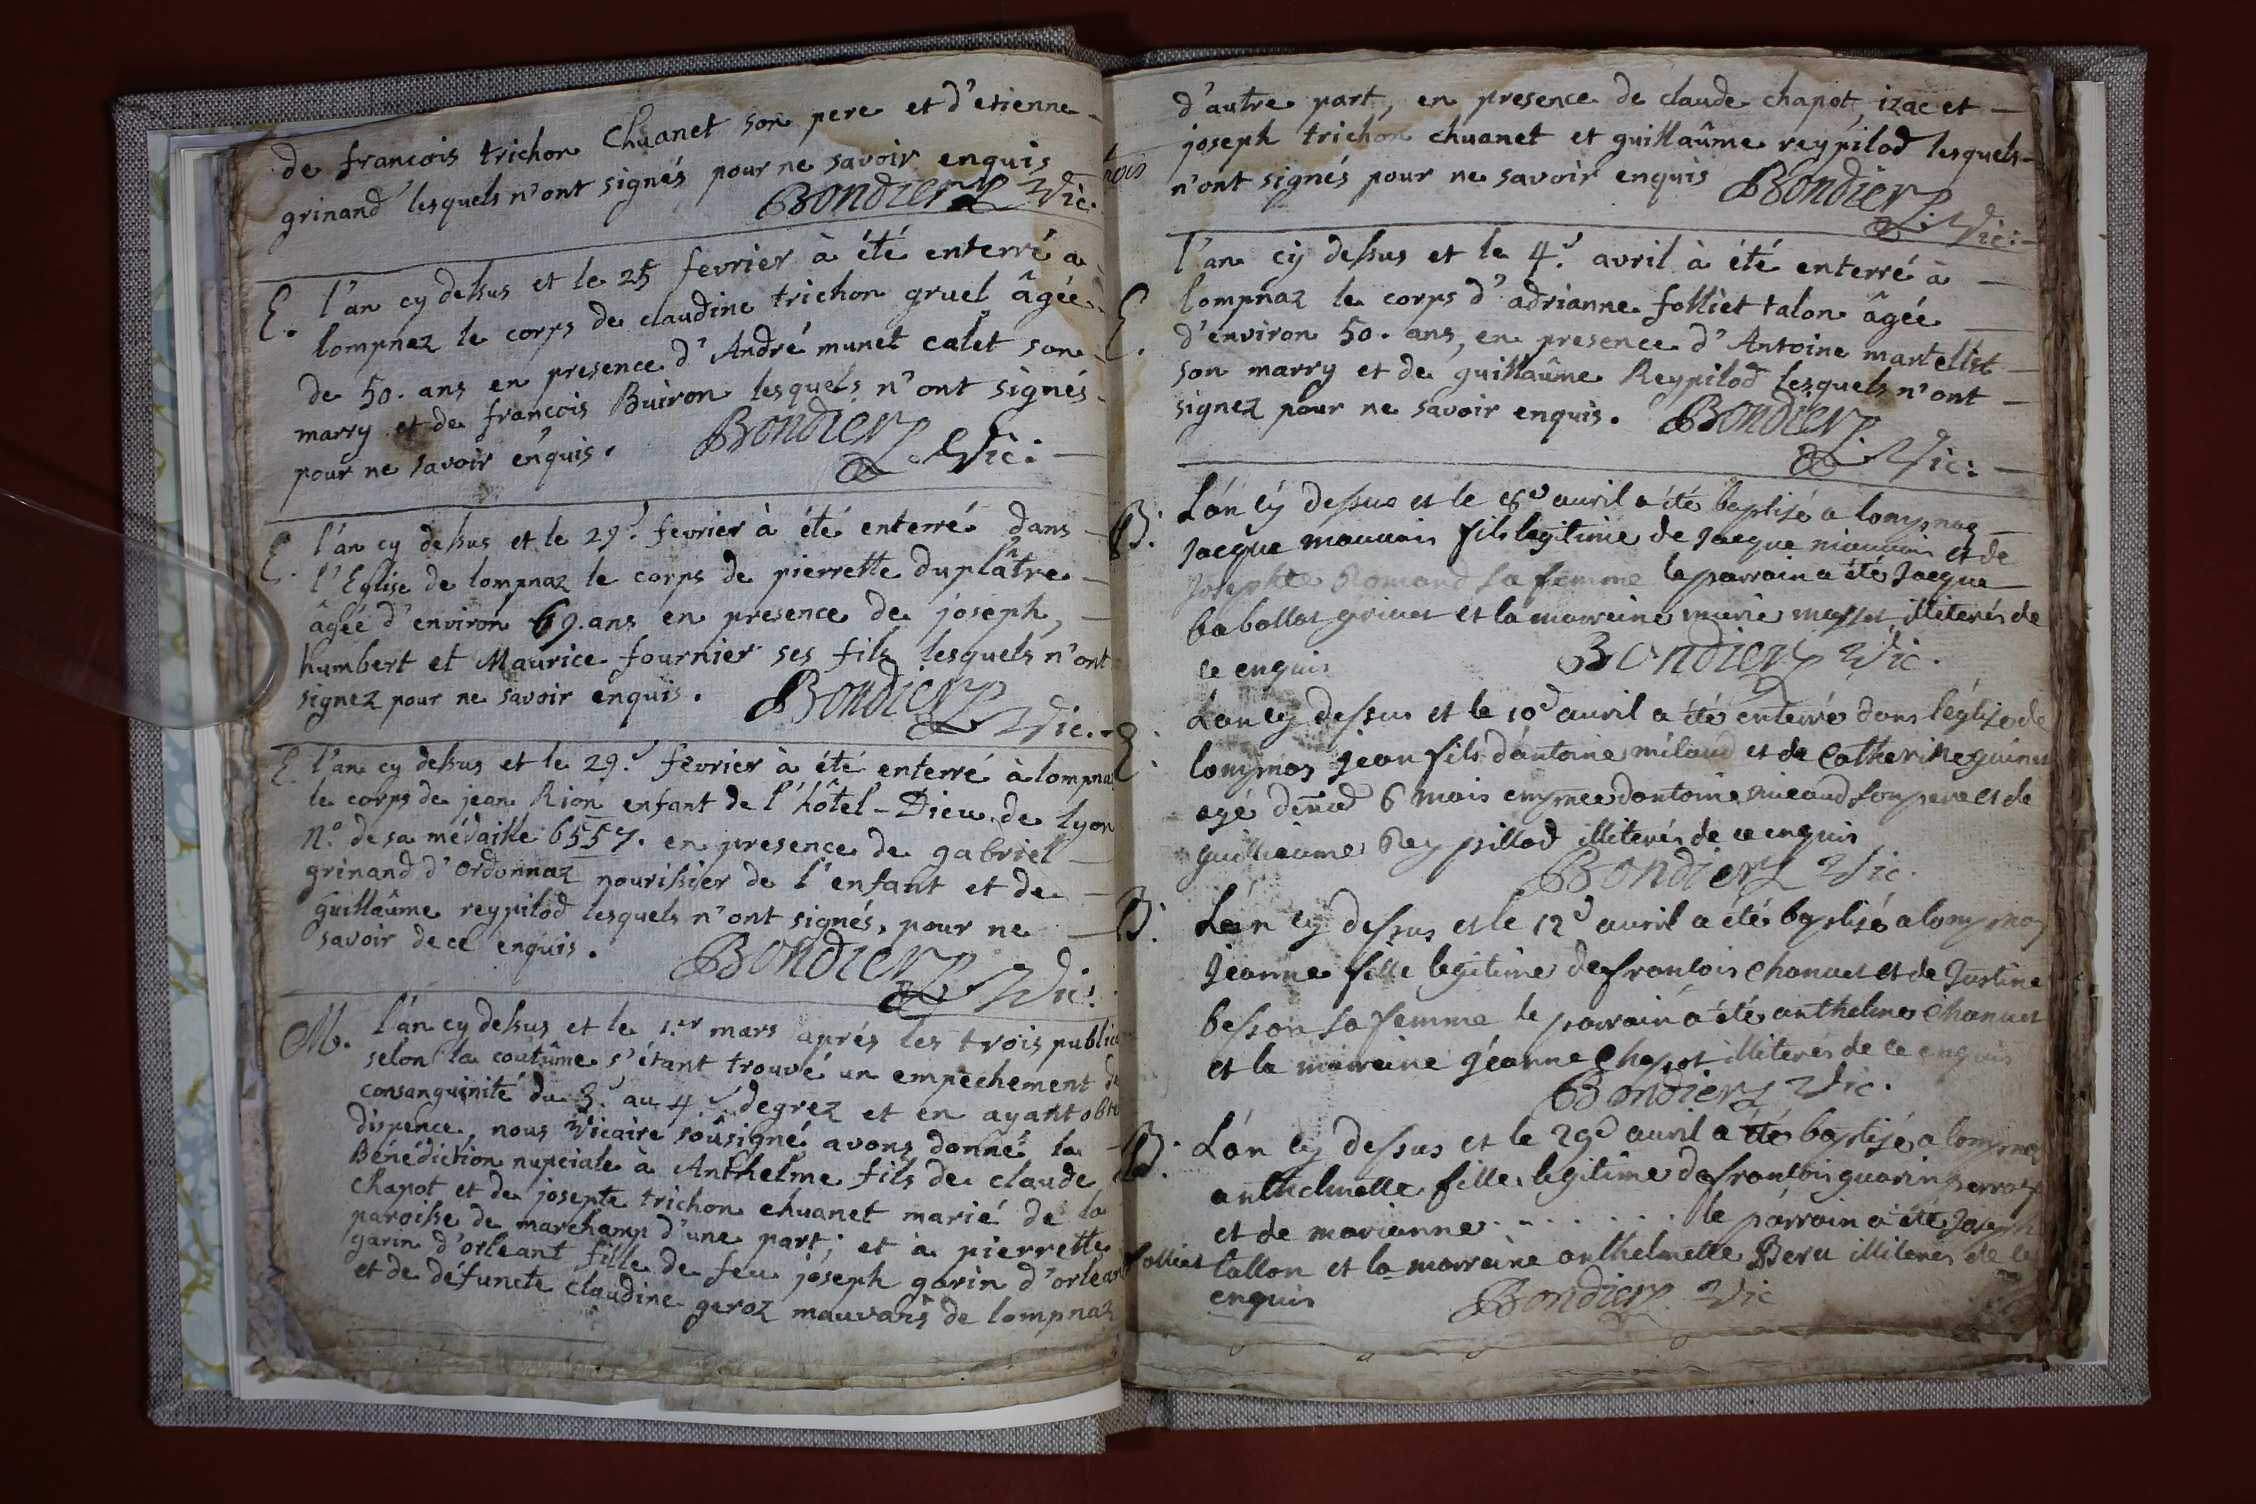 de francois trichon Chuanet son pere et d'etienne
grinand lesquels n'ont signés pour ne savoir enquis
Bondier Vic.
E. l'an cy dessus et le 25 fevrier à été enterré a
lompnaz le corps de claudine trichon gruel âgée
de 50. ans en presence d'André munet calet son
marry et de francois Buiron lesquels n'ont signés
pour ne savoir enquis. Bondier Vic:
E. l'an cy dessus et le 29e fevrier à été enterré dans
l'Eglise de lompnaz le corps de pierrette duplatre
âgée d'environ 69. ans en presence de joseph,
humbert et Maurice fournier ses fils lesquels n'ont
signez pour ne savoir enquis. Bondier Vic.
E. l'an cy dessus et le 29e fevrier à été enterré à lompna
le corps de jean Rion enfant de l'hôtel-Dieu de lyon
No. de sa médaille 6557. en presence de gabriel
grinand d'ordonnaz nourissier de l'enfant et de
Guillaûme reypilod lesquels n'ont signés, pour ne
savoir de ce enquis. Bondier Vic:
M. l'an cy dessus et le 1.er mars aprés les trois public
selon la coutûme s'étant trouvé un empechement de
consanguinité du 3e au 4e degrez et en ayant obte
dispence nous Vicaire soûsigné avons donné la
Bénédiction nupciale à Anthelme fils de claude
chapot et de josepte trichon chuanet marié de la
paroisse de marchamp d'une part; et à pierrette
garin d'orleant fille de feu joseph garin d'orlean
et de défuncte claudine geroz mauvais de lompnaz
d'autre part, en presence de claude chapot, izac et
joseph trichon chuanet et guillaûme reypilod lesquels
n'ont signés pour ne savoir enquis Bondier Vic:
E. l'an cy dessus et le 4e avril à été enterré à
lompnaz le corps d'adrianne folliet talon âgée
d'environ 50. ans, en presence d'Antoine martellet
son marry et de guillaûme Reypilod lesquels n'ont
signez pour ne savoir enquis. Bondier Vic:
B. Lán cÿ dessus et le 8e auril a été baptisé a lompnaz
Jacque mauuais fils legitime de Jacque mauuais et de
Josephte Romand sa femme le parrain a été Jacque
baballat griuet et la marraine marie illiterés de
ce enquis Bondier Vic.
E. Lan cÿ dessus et le 10e auril a été enterré dans l'église de
lompnaz jean fils d'antoine milaud et de Catherine
agé 6 mois en d'antoine son pere et de
guilliaume Reypillod illiterés de ce enquis
Bondier Vic.
B. Lán cÿ dessus et le 12e auril a été baptisé a lompnaz
Jeanne fille legitime de francois Chanuet et de Justine
besson sa femme le parrain a été anthelme Chanuet
et la marraine Jéanne Chapot illiterés de ce enquis
Bondier Vic.
B. Lán cÿ dessus et le 29e auril a été baptisé a lompnaz
anthelmette fille legitime de francois guarin perroz
et de marianne . . . . . . . le parrain a été Joseph
folliet tallon et la marraine anthelmette Beru illiterés de ce
enquis Bondier Vic